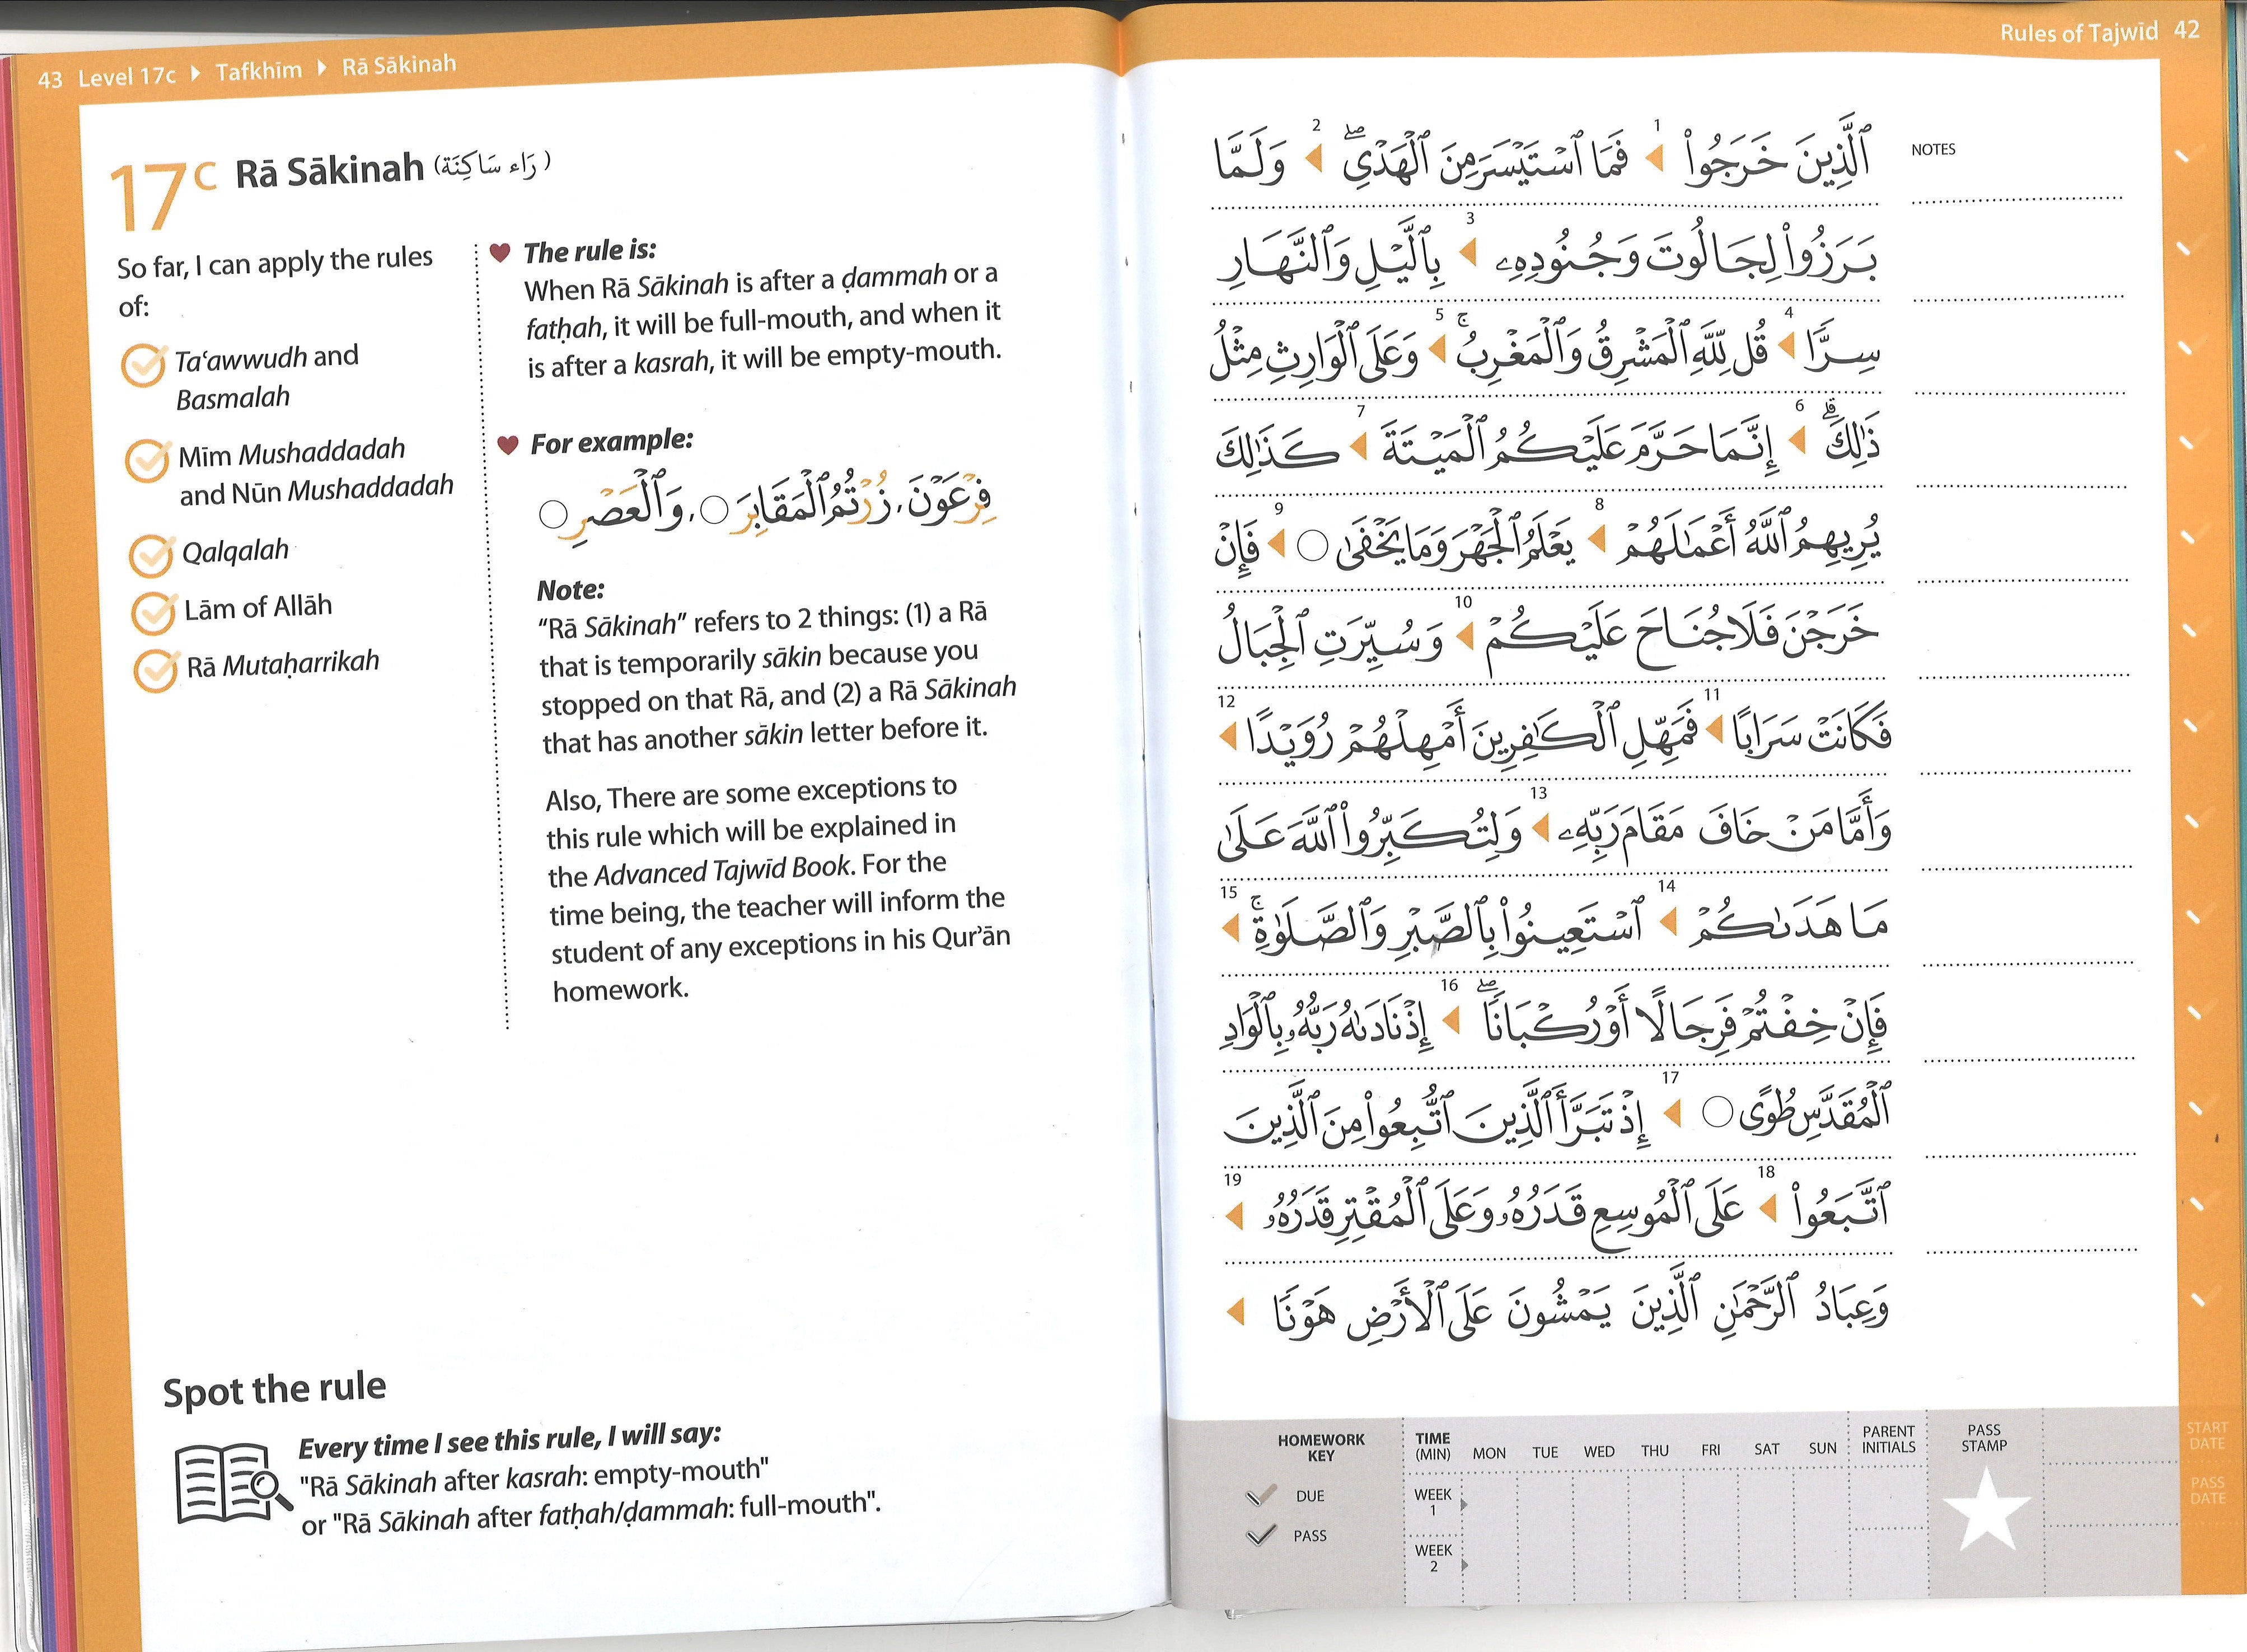 43 Level 17c Tafkhīm Rā Sākinah
17C Rā Sākinah (رَاء سَاكِنَة)
So far, I can apply the rules
of:
Ta‘awwudh and
Basmalah
Mīm Mushaddadah
and Nūn Mushaddadah
Qalqalah
Lām of Allāh
Rā Mutaḥarrikah
The rule is:
When Rā Sākinah is after a ḍammah or a
fatḥah, it will be full-mouth, and when it
is after a kasrah, it will be empty-mouth.
For example:
فِرْعَوْنَ، زُرْتُمُ ٱلْمَقَابِرَ ○، وَٱلْعَصْرِ ○
Note:
“Rā Sākinah” refers to 2 things: (1) a Rā
that is temporarily sākin because you
stopped on that Rā, and (2) a Rā Sākinah
that has another sākin letter before it.
Also, There are some exceptions to
this rule which will be explained in
the Advanced Tajwīd Book. For the
time being, the teacher will inform the
student of any exceptions in his Qur’ān
homework.
Spot the rule
Every time I see this rule, I will say:
"Rā Sākinah after kasrah: empty-mouth"
or "Rā Sākinah after fatḥah/ḍammah: full-mouth".
Rules of Tajwīd 42
NOTES
ٱلَّذِينَ خَرَجُوا۟ 1 فَمَا ٱسْتَيْسَرَ مِنَ ٱلْهَدْىِ ۖ 2 وَلَمَّا
بَرَزُوا۟ لِجَالُوتَ وَجُنُودِهِۦ 3 بِٱلَّيْلِ وَٱلنَّهَارِ
سِرًّا 4 قُل لِّلَّهِ ٱلْمَشْرِقُ وَٱلْمَغْرِبُ ۚ 5 وَعَلَى ٱلْوَارِثِ مِثْلُ
ذَٰلِكَ ۗ 6 إِنَّمَا حَرَّمَ عَلَيْكُمُ ٱلْمَيْتَةَ 7 كَذَٰلِكَ
يُرِيهِمُ ٱللَّهُ أَعْمَـٰلَهُمْ 8 يَعْلَمُ ٱلْجَهْرَ وَمَا يَخْفَىٰ ○ 9 فَإِنْ
خَرَجْنَ فَلَا جُنَاحَ عَلَيْكُمْ 10 وَسُيِّرَتِ ٱلْجِبَالُ
فَكَانَتْ سَرَابًا 11 فَمَهِّلِ ٱلْكَـٰفِرِينَ أَمْهِلْهُمْ رُوَيْدًا 12
وَأَمَّا مَنْ خَافَ مَقَامَ رَبِّهِۦ 13 وَلِتُكَبِّرُوا۟ ٱللَّهَ عَلَىٰ
مَا هَدَىٰكُمْ 14 ٱسْتَعِينُوا۟ بِٱلصَّبْرِ وَٱلصَّلَوٰةِ ۚ 15
فَإِنْ خِفْتُمْ فَرِجَالًا أَوْ رُكْبَانًا ۖ 16 إِذْ نَادَىٰهُ رَبُّهُۥ بِٱلْوَادِ
ٱلْمُقَدَّسِ طُوًى ○ 17 إِذْ تَبَرَّأَ ٱلَّذِينَ ٱتُّبِعُوا۟ مِنَ ٱلَّذِينَ
ٱتَّبَعُوا۟ 18 عَلَى ٱلْمُوسِعِ قَدَرُهُۥ وَعَلَى ٱلْمُقْتِرِ قَدَرُهُۥ 19
وَعِبَادُ ٱلرَّحْمَـٰنِ ٱلَّذِينَ يَمْشُونَ عَلَى ٱلْأَرْضِ هَوْنًا
HOMEWORK
KEY
DUE
PASS
TIME
(MIN) MON TUE WED THU FRI SAT SUN
WEEK
1
WEEK
2
PARENT
INITIALS
PASS
STAMP
START
DATE
PASS
DATE